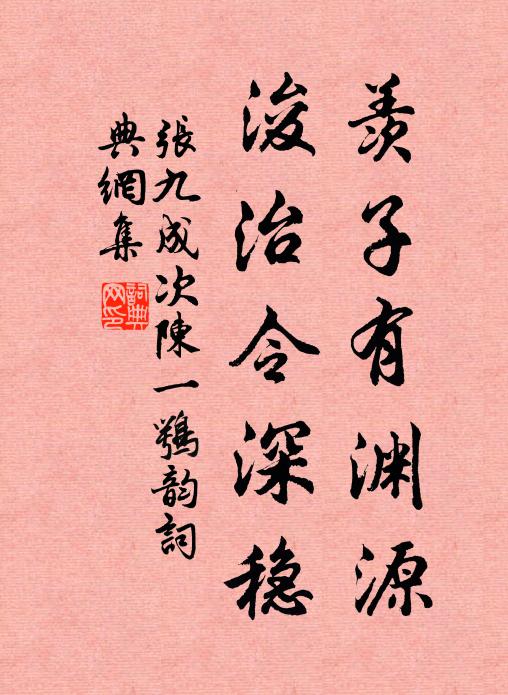 羨子有渊源
浚治令深稳
張九成次陳一鶚韵詞
典網集
詞典
网印